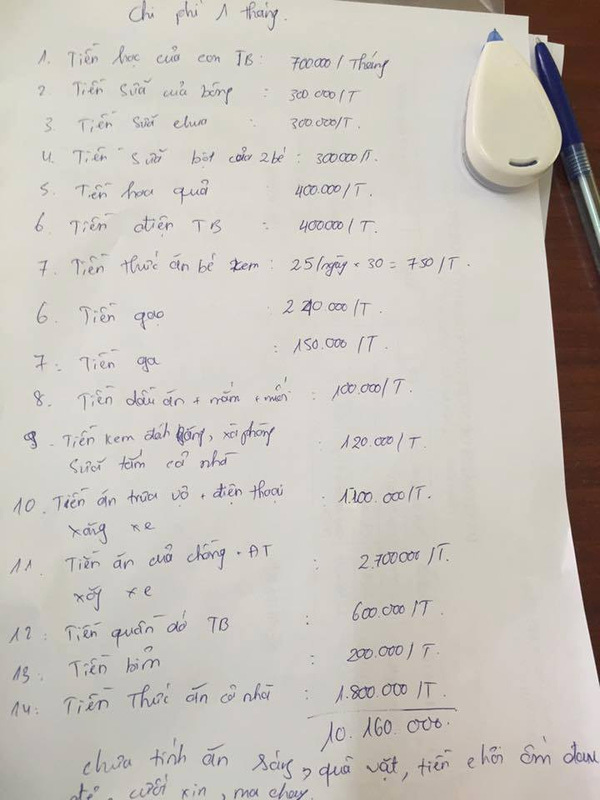 Chi phí 1 tháng.
1. Tiền học của con TB: 700000/Tháng
2 Tiền sữa của bống : 300.000/T
3 Tiền sữa chua : 300.000/T.
4. Tiền sữa bột của 2 bé : 300000/T.
5. Tiền hoa quả : 400.000/T
6 Tiền điện TB : 400000/T.
7. Tiền thức ăn bé kem : 25/ngày × 30 = 750/T.
6. Tiền gạo : 240.000/T.
7: Tiền ga : 150.000/T.
8. Tiền dầu ăn + mắm + muối : 100.000/T
9. Tiền kem đánh răng, xà phòng : 120.000/T.
Sữa tắm cả nhà
10. Tiền ăn trưa vợ + điện thoại : 1.100.000/T.
xăng xe
11. Tiền ăn của chồng + ĐT : 2.700000/T.
xăng xe
12: Tiền quần áo TB : 600.000/T
13. Tiền bỉm : 200.000/T.
14: Tiền Thức ăn cả nhà : 1.800.000/T.
10.160.000.
chưa tính ăn sáng, quà vặt, tiền chơi ốm đau
đẻ, cưới xin, ma chay.